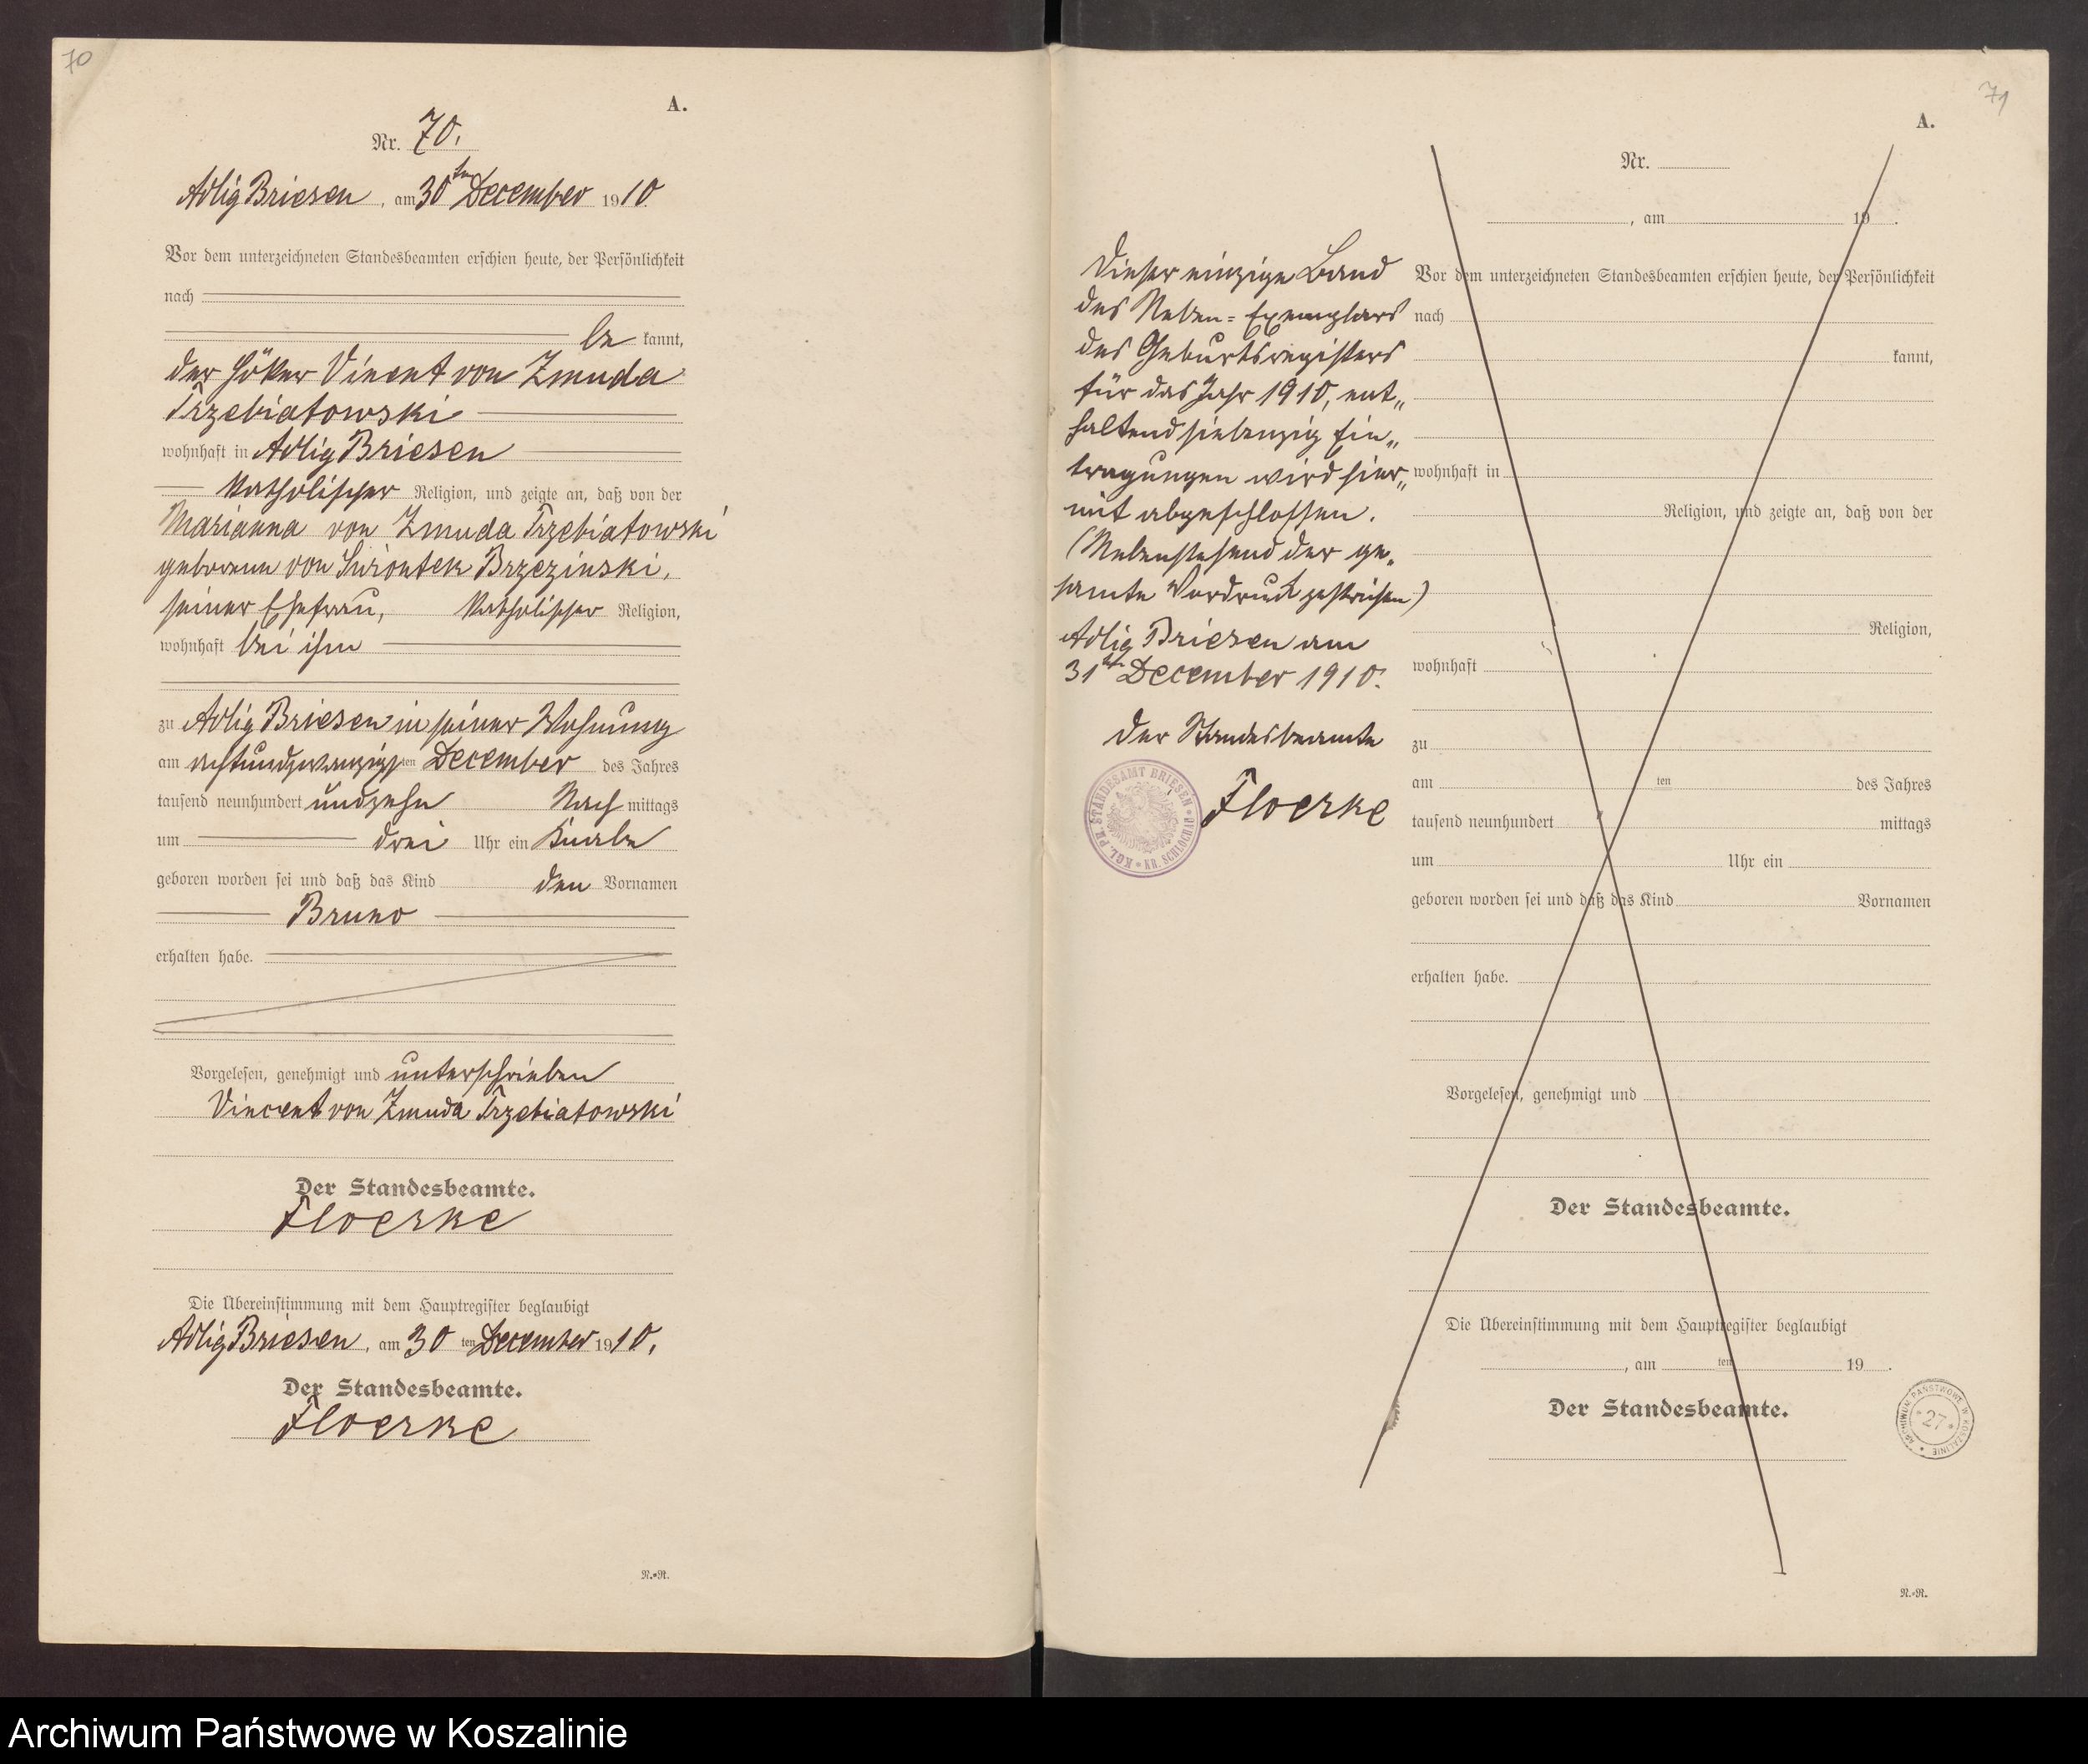 70
A.
Nr. 70.
Adlig Briesen, am 30ten December 1910.
Vor dem unterzeichneten Standesbeamten erschien heute, der Persönlichkeit
nach
be kannt,
der Höker Vincent von Zmuda
Trzebiatowski
wohnhaft in Adlig Briesen
katholischer Religion, und zeigte an, daß von der
Marianna von Zmuda Trzebiatowski
geborenen von Swiontek Brzezinski,
seiner Ehefrau, katholischer Religion,
wohnhaft bei ihm
zu Adlig Briesen in seiner Wohnung
am achtundzwanzigsten December des Jahres
tausend neunhundert undzehn Nach mittags
um drei Uhr ein Knabe
geboren worden sei und daß das Kind den Vornamen
Bruno
erhalten habe.
Vorgelesen, genehmigt und unterschrieben
Vincent von Zmuda Trzebiatowski
Der Standesbeamte.
Floerke
Die Übereinstimmung mit dem Hauptregister beglaubigt
Adlig Briesen, am 30 ten December 1910.
Der Standesbeamte.
Floerke
N.-R.
71
A.
Nr.
, am 19 .
Dieser einzige Band
des Neben-Exemplars
des Geburtsregisters
für das Jahr 1910, ent„
haltend siebenzig Ein„
tragungen wird hier„
mit abgeschlossen.
(Nebenstehend der ge„
samte Vordruck gestrichen)
Adlig Briesen am
31ten December 1910.
Der Standesbeamte
Floerke
KGL. PR. STANDESAMT BRIESEN * KR. SCHLOCHAU *
Vor dem unterzeichneten Standesbeamten erschien heute, der Persönlichkeit
nach
kannt,
wohnhaft in
Religion, und zeigte an, daß von der
Religion,
wohnhaft
zu
am ten des Jahres
tausend neunhundert mittags
um Uhr ein
geboren worden sei und daß das Kind Vornamen
erhalten habe.
Vorgelesen, genehmigt und
Der Standesbeamte.
Die Übereinstimmung mit dem Hauptregister beglaubigt
, am ten 19 .
Der Standesbeamte.
ARCHIWUM PAŃSTWOWE W KOSZALINIE *
* 27 *
N.-R.
Archiwum Państwowe w Koszalinie